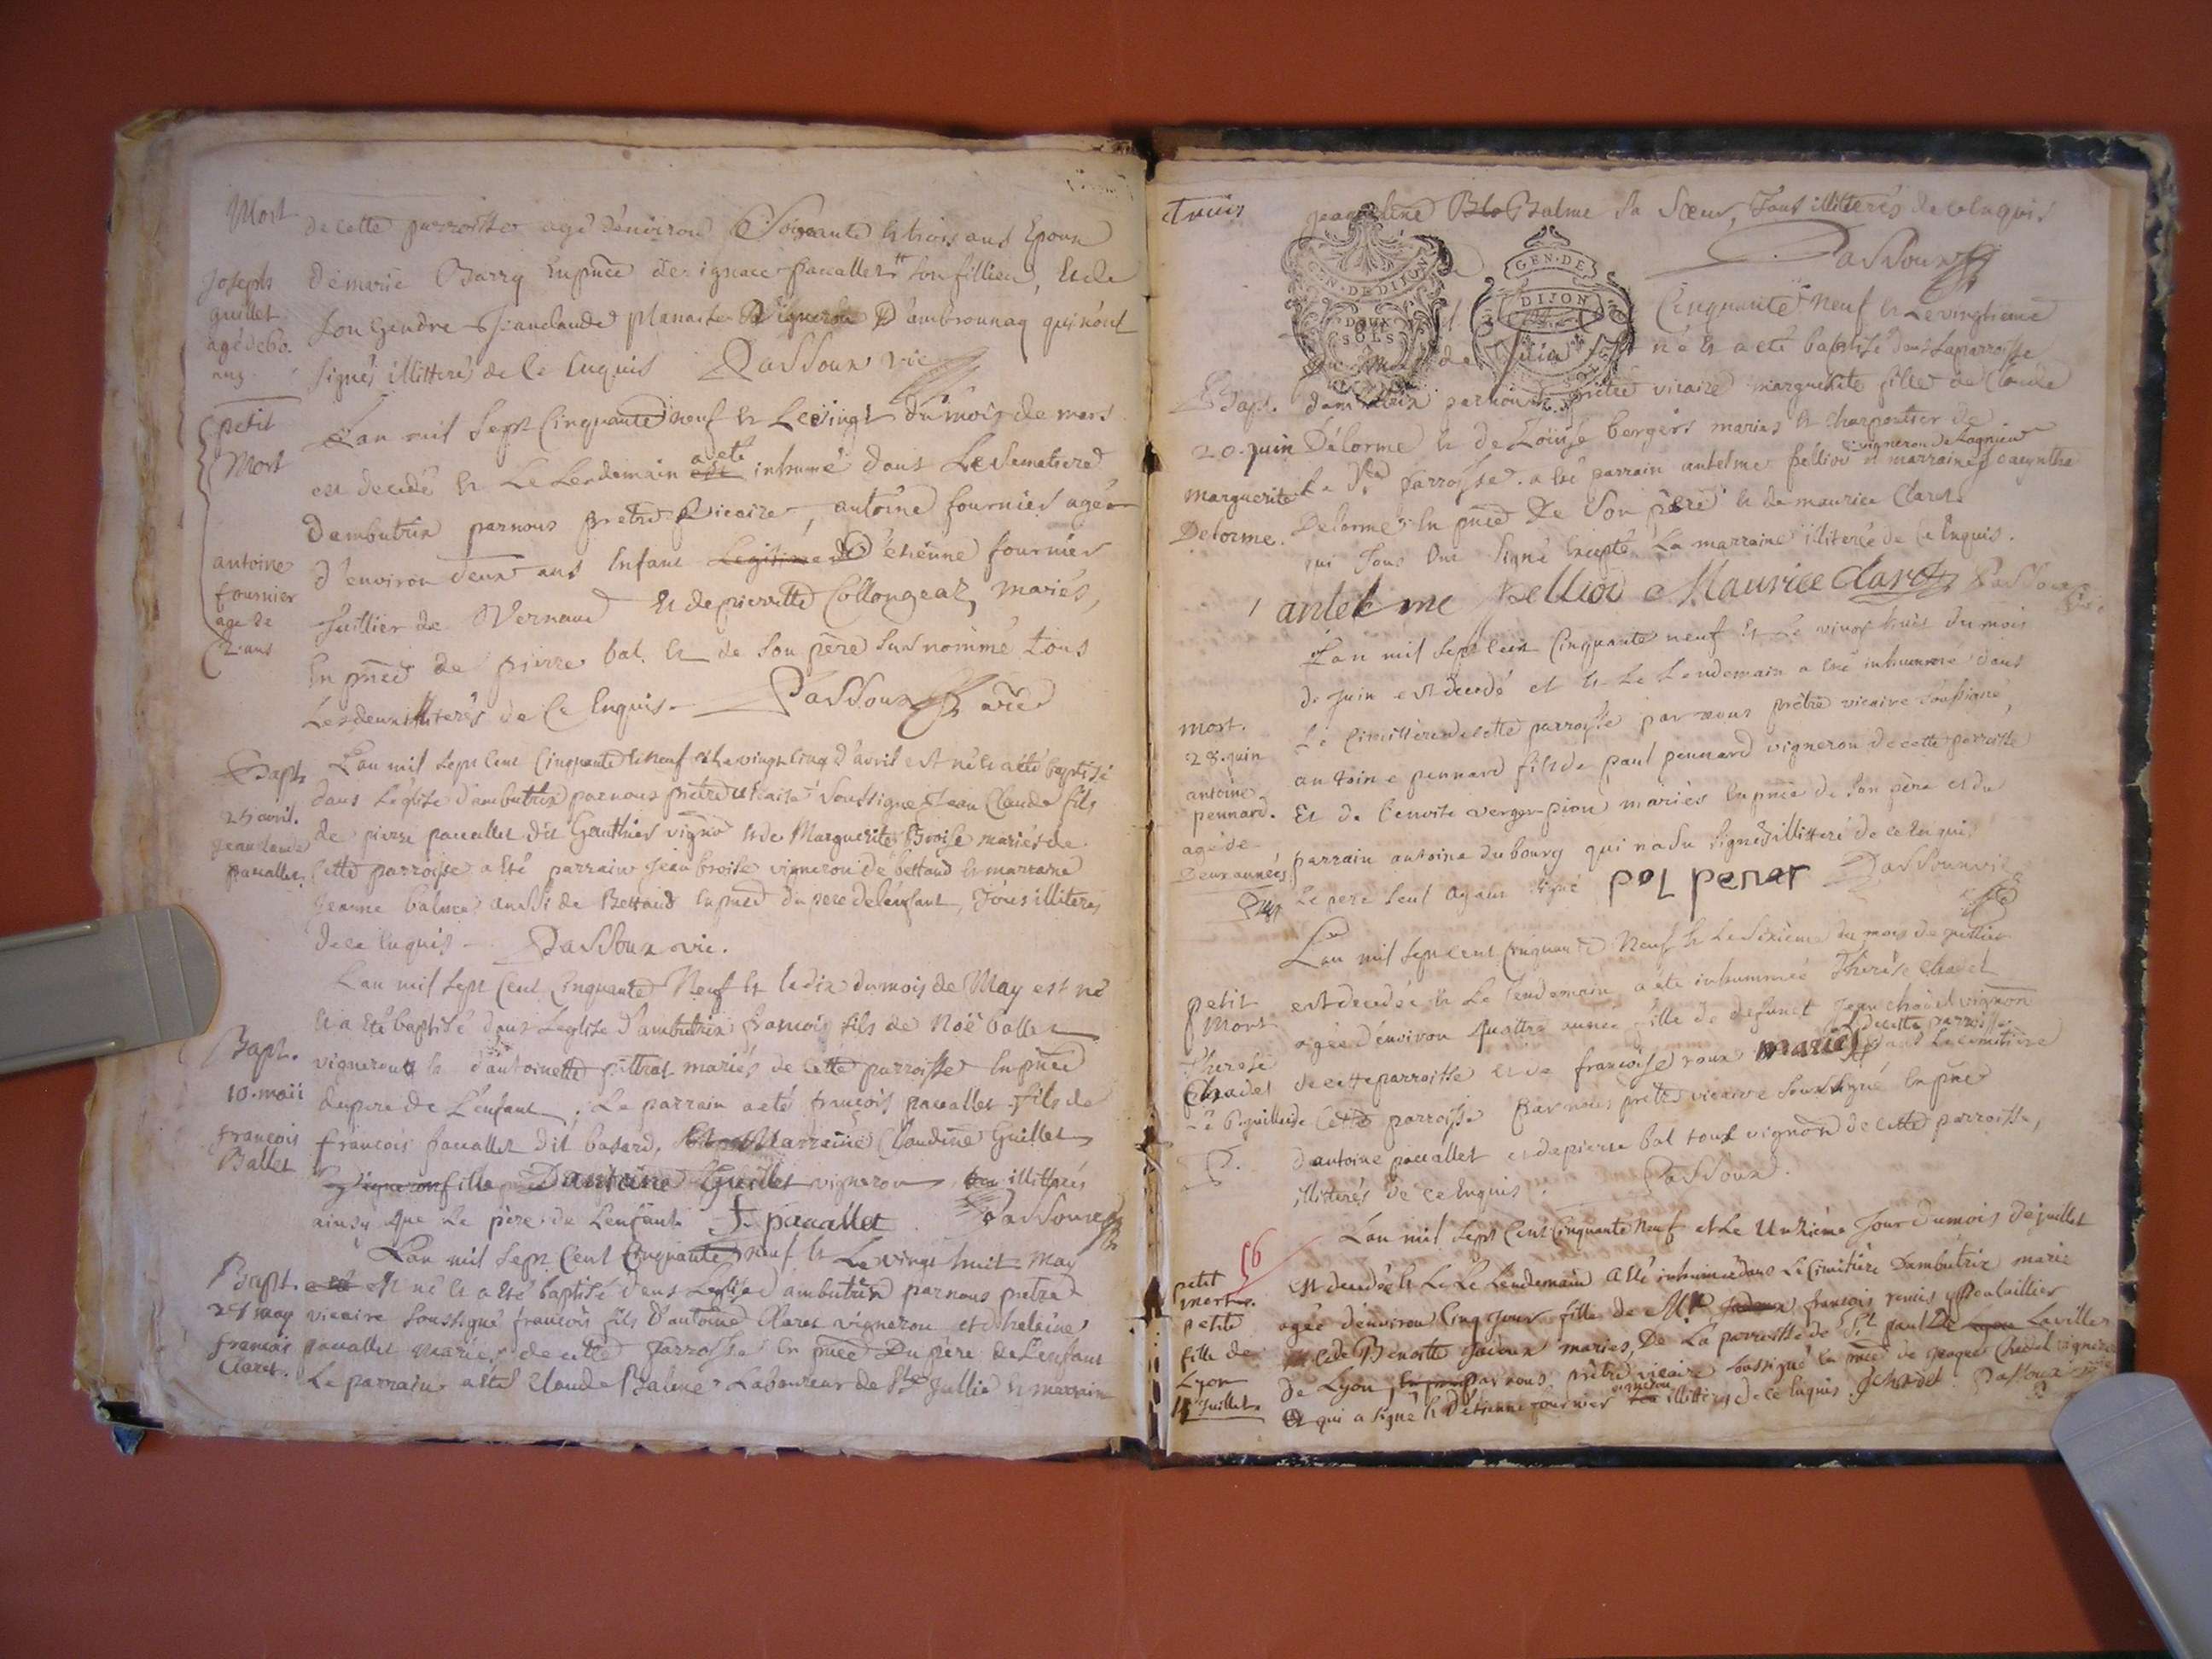 Mort
Joseph
guillet
agé de 60.
ans
de cette parroisse agé d'environ Soixante et trois ans Epoux
de marie Barry En pnce de ignace pauallet son fillieu, et de
son Gendre Jeanclaude planaise Vigneron D'ambronnay qui n'ont
signés illitteré de ce Enquis Passoux vic
petit
Mort
antoine
fournier
age de
2 ans
Lan mil Sept Cinquante neuf et Le vingt du mois de mars
est decedé et Le Lendemain a eté inhumé dans Le Sematiere
Dambutrix par nous pretre Vicaire, antoine fournier agé
d'environ deux ans Enfant Legitime de D'etienne fournier
fuillier de Vernaud et de pierrette Collongeaz, mariés,
En pnce de pierre bal et de Son pere Sus nommé tous
Les deux illiterés de Ce Enquis. Passoux vic
Bapt
25 avril.
jeanclaude
pauallet.
Lan mil Sept Cent Cinquante et neuf et Le vingt cinq d'avril est né et a eté baptisé
dans Leglise d'ambutrix par nous pretre vicaire Soussigné Jean Claude fils
de pierre pauallet dit Gauthier vigno et de Marguerite Broise mariés de
Cette parroisse a eté parrain jean broise vigneron de bettand et marraine
jeanne balme aussi de Bettand En pnce du pere de lenfant, Tous illiteres
de ce Enquis. Passoux vic.
Bapt.
10. maii
françois
Ballet
Lan mil Sept Cent Cinquante Neuf et le dix du mois de May est né
et a eté baptisé dans Leglise d'ambutrix françois fils de Noë ballet
vigneron et d'antoinette pittrat mariés de cette parroisse En pnce
du pere de L'enfant. Le parrain a eté françois pauallet fils de
francois pauallet dit basard, Et Marraine Claudine Guillet
Vigneron fille D'antoine Guillet vigneron illitterés
ainsy que Le père de Lenfant. f. pauallet. Passoux
Bapt.
28 may
francois
Claret.
Lan mil Sept Cent Cinquante neuf et Le vingt huit May
a eté est né et a eté baptisé dans Leglise d'ambutrix par nous pretre
vicaire Soussigné françois fils D'antoine Claret vigneron et d'helaine
pauallet mariés de cette parroisse En pnce Du père de Lenfant
Le parrain a eté Claude Balme Laboureur de St Jullie et marrain
Trois
jeaqueline Bla Balme sa Sœur, Tous illitterés de ce Enquis
Passoux
GEN·DE DIJON
DEUX
SOLS
GEN·DE
DIJON
Bapt.
20. juin
marguerite
Delorme.
Cinquante Neuf et Le vingtieme
Du Mois de Juin est né et a eté baptisé dans La parroisse
dambutrix par nous pretre vicaire marguerite fille de Claude
Delorme et de Loüise bergers mariés et charpentier de
La de parroisse. a eté parrain antelme pelliod vigneron de Lagnieu et marraine
Delorme En pnce De Son père et de maurice Claret
qui Tous Ont Signé Excepté La marraine illiterée de Ce Enquis.
antelme pelliod Maurice Claret Passoux
mort.
28. juin
antoine
pennard.
agé de
Deux années
Lan mil Sept Cent Cinquante neuf et Le vingt huit du mois
de Juin est decedé et et Le Lendemain a eté inhummé dans
Le Cimittiere de cette parroisse par nous prêtre vicaire Soussigné,
antoine pennard fils de paul pennard vigneron de cette parroisse
Et de benoite verger-pion mariés En pnce de Son père et du
parrain antoine dubourg qui na Su signer illitteré de ce Enquis,
Le pere Seul ayant signé pol penar Passoux vic
petit
Mort
Therese
Chadel
Le 6 juillet
Lan mil Sept Cent Cinquante Neuf et Le Sixieme du mois de juillet
est decedée et Le Lendemain a eté inhummée Therése Chadel
agée d'environ quattre année fille de defunct Jean chadel vignon
de cette parroisse et de françoise roux mariés de cette parroisse dans Le cemitiere
de Cette parroisse par nous pretre vicaire Soussigné En pnce
d'antoine pauallet et de pierre bal tous vignon de cette parroisse,
illiterés de ce Enquis. Passoux.
56
petit
mort.
petite
fille de
Lyon
11 juillet.
Lan mil Sept Cent Cinquante Neuf et Le Unzieme Jour du mois de juillet
est decedée et Le Lendemain a eté inhumée dans Le Cimitiere Dambutrix marie
agée d'environ Cinq jours fille de françois remis poulaillier
et de Benoitte Jadoux mariés, De La parroisse de St paul De La ville
de Lyon par nous prêtre vicaire Soussigné En pnce de Chadel vigneron
qui a signé et D'etienne fournier vigneron illitteré de ce Enquis. Chadel Passoux